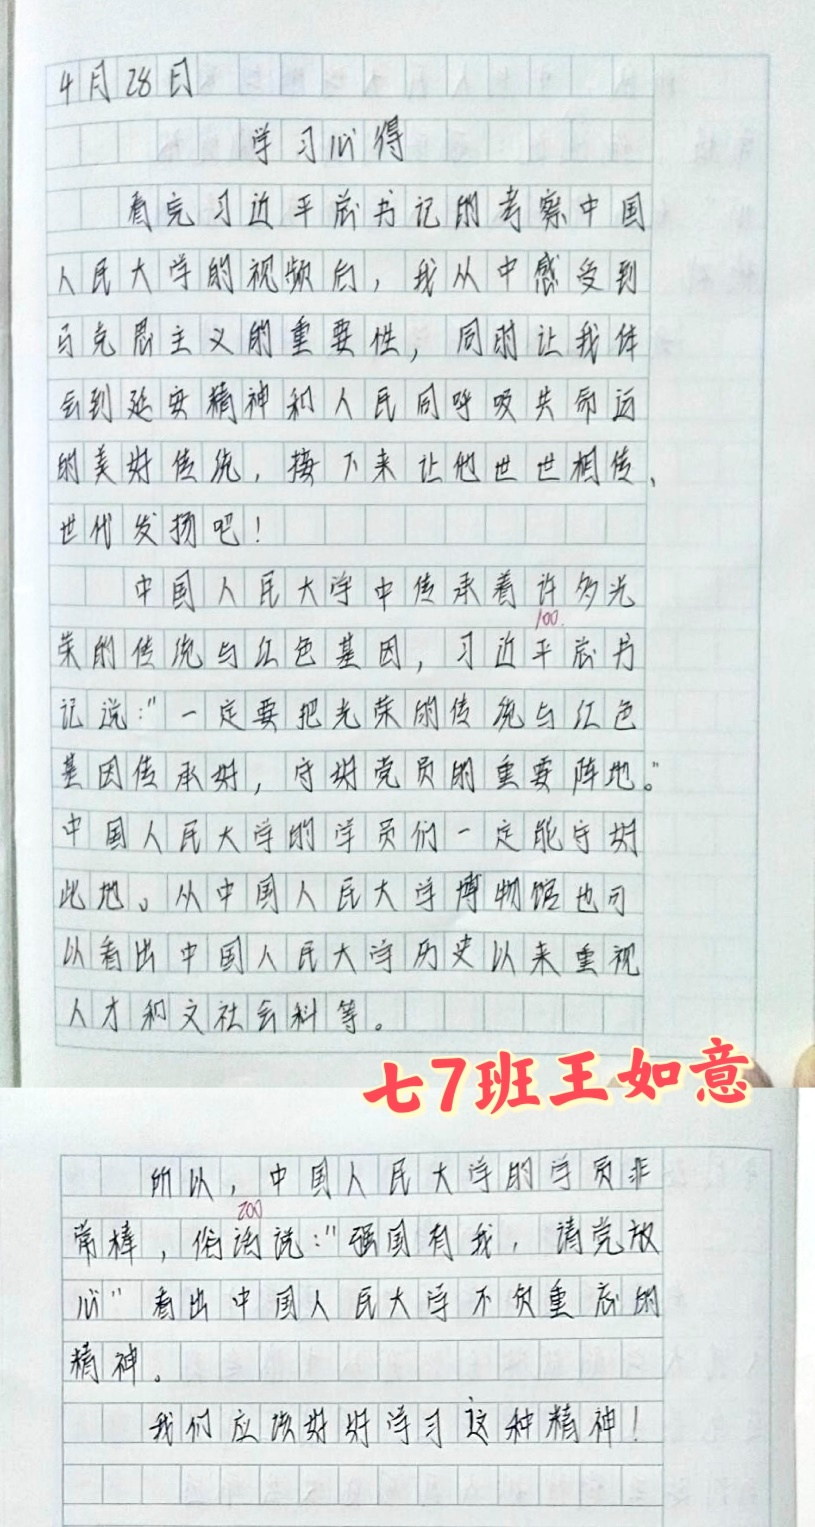 4月28日
学习心得
看完习近平总书记的考察中国
人民大学的视频后，我从中感受到
马克思主义的重要性，同时让我体
会到延安精神和人民同呼吸共命运
的美好传统，接下来让他世世相传、
世代发扬吧！
中国人民大学中传承着许多光
100.
荣的传统与红色基因，习近平总书
记说："一定要把光荣的传统与红色
基因传承好，守好党员的重要阵地。"
中国人民大学的学员们一定能守好
此地。从中国人民大学博物馆也可
以看出中国人民大学历史以来重视
人才和文社会科等。
七7班王如意
所以，中国人民大学的学员非
200
常棒，俗话说："强国有我，请党放
心"看出中国人民大学不负重底的
精神。
我们应该好好学习这种精神！